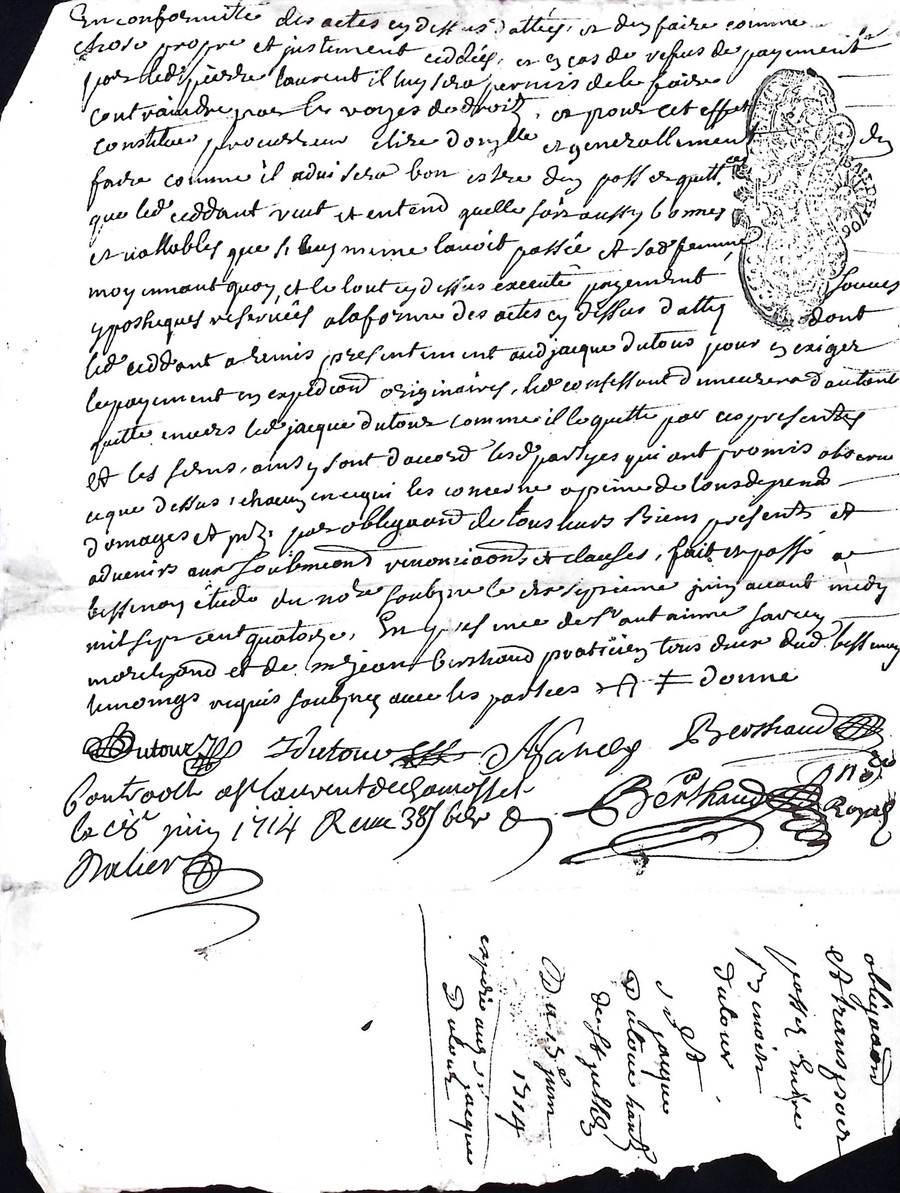 En conformité des actes cy dessus dattés, et den faire comme
chose propre et justement ceddée, et en cas de refus de payement
par led pierre laurent il luy sera permis de le faire
contraindre par les voyes de droit, et pour cet effet
constitue procureur élire domylle et generallement
faire comme il advisera bon estre den pass et quitt. den
que led ceddant veut et entend quelle soit aussy bonnes
et vallables que si luy meme lavoit passée et sad femme
moyennant quoy, et le tout cy dessus executé payement
yposheques reservées a la forme des actes cy dessus datty dont
led ceddant a remis presentement aud jacque dutour pour en exiger
le payement en expediond originaires, led confessant demeurera dautant
quitte envers led jacque dutour comme il le quitte par ces presentes
et les siens, ainsy sont daccord lesd partyes qui ont promis observer
ce que dessus, chacun en ce qui les concerne a peine de tous depend
domages et jntz, par obligaond de tous leurs biens presents et
advenirs aux soubmiond renonciaond et clauses, fait et passé a
bessenay étude du nore soubsne le dix septieme juin avant midy
mil sept cent quatorze, En presence de Sr antoinne
marchand et de me jean berthaud praticien tous deux dud bessenay
temoings requis soubsnez avec les parties
Dutour Dutour Berthaud
Berthaud nore Royal
Controolé a St laurent de chamosset
le juin 1714 Reeu
obligaond
et transport
passée Entre
Benoist
dutour
et
sr jacque
Dutour
de st jullien
Du 15e juin
1714
expedié aud sr jacque
Dutour